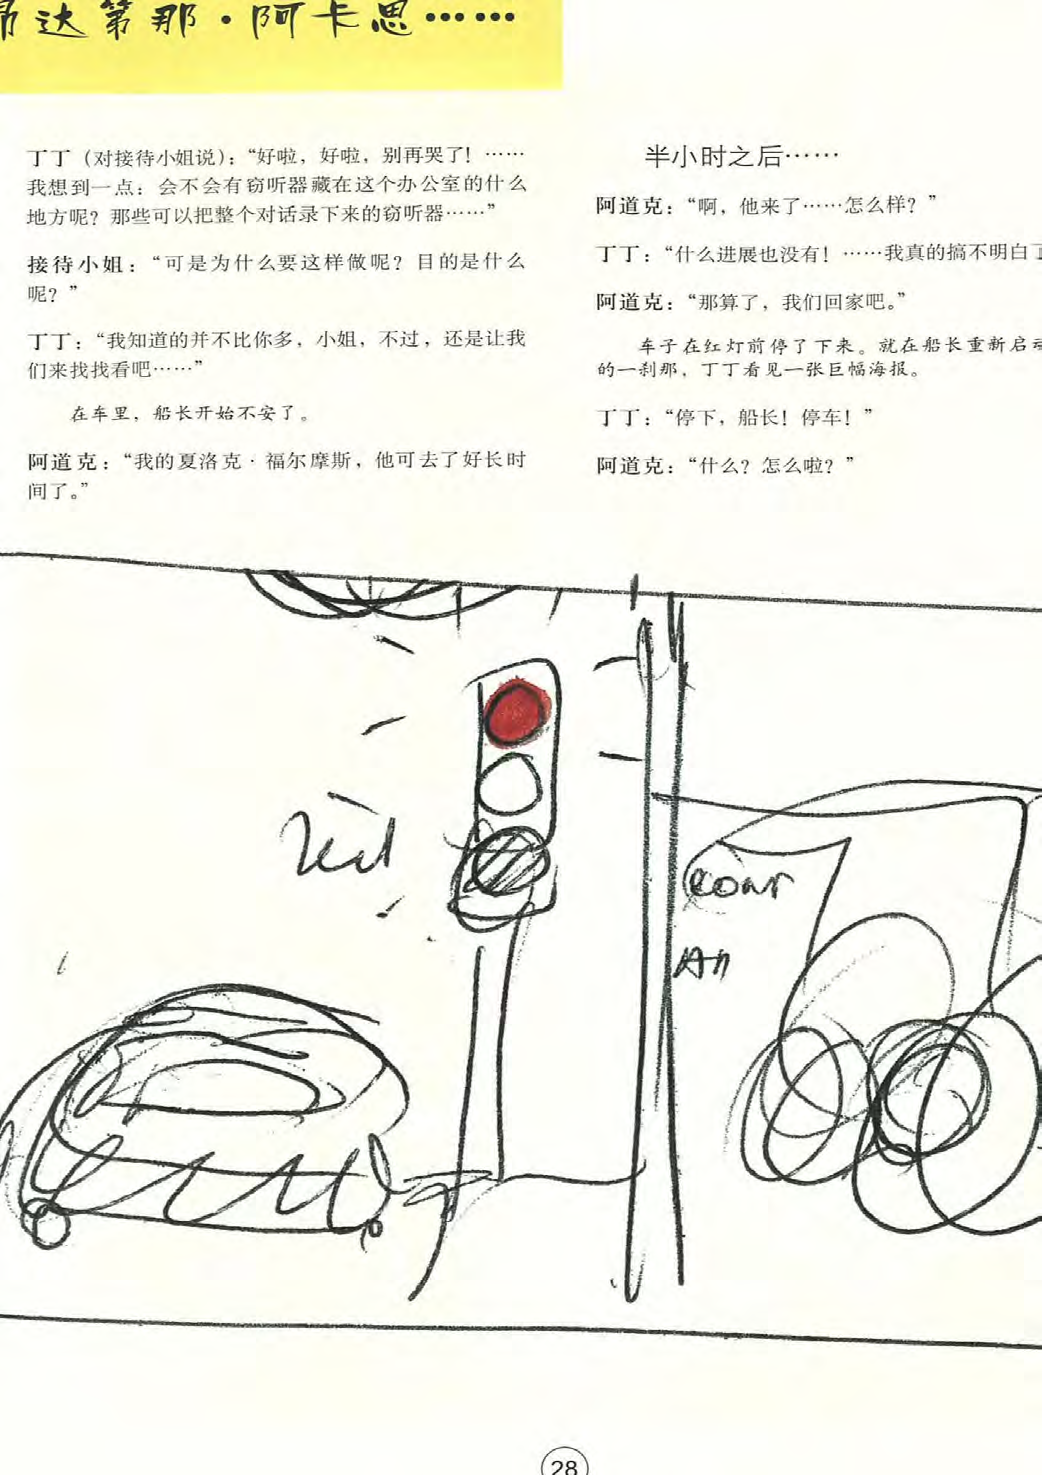 昂达第那·阿卡思……
丁丁（对接待小姐说）：“好啦，好啦，别再哭了！……
我想到一点：会不会有窃听器藏在这个办公室的什么
地方呢？那些可以把整个对话录下来的窃听器……”
接待小姐：“可是为什么要这样做呢？目的是什么
呢？”
丁丁：“我知道的并不比你多，小姐，不过，还是让我
们来找找看吧……”
在车里，船长开始不安了。
阿道克：“我的夏洛克·福尔摩斯，他可去了好长时
间了。”
半小时之后……
阿道克：“啊，他来了……怎么样？”
丁丁：“什么进展也没有！……我真的搞不明白
阿道克：“那算了，我们回家吧。”
车子在红灯前停了下来。就在船长重新启动
的一刹那，丁丁看见一张巨幅海报。
丁丁：“停下，船长！停车！”
阿道克：“什么？怎么啦？”
28